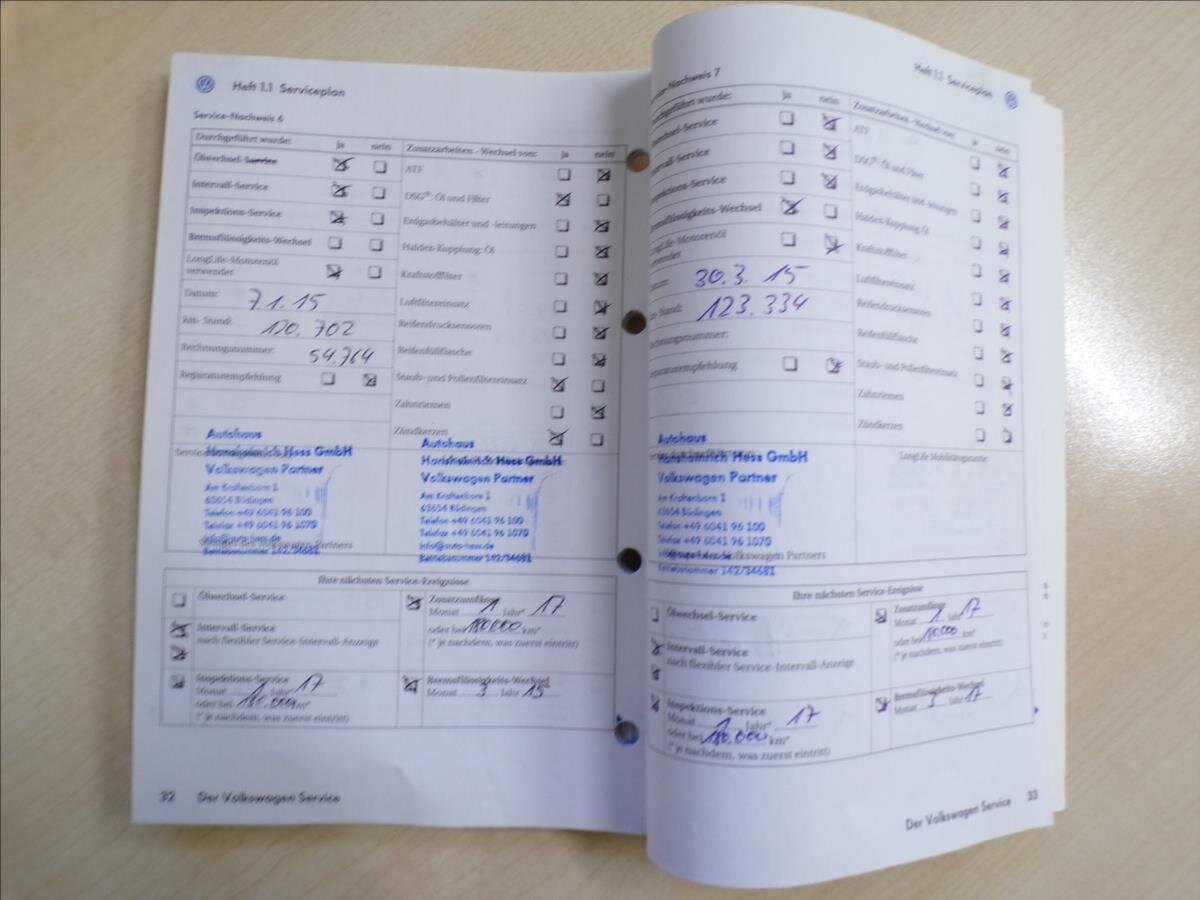 Heft 1.1 Serviceplan
Service-Nachweis 6
Durchgeführt wurde: ja nein
Ölwechsel-Service
Intervall-Service
Inspektions-Service
Bremsflüssigkeits-Wechsel
LongLife-Motorenöl
verwendet
Datum: 7.1.15
km-Stand: 120.702
Rechnungsnummer: 54.764
Reparaturempfehlung
Zusatzarbeiten - Wechsel von: ja nein
ATF
DSG®: Öl und Filter
Erdgasbehälter und -leitungen
Haldex-Kupplung: Öl
Kraftstofffilter
Luftfiltereinsatz
Reifendrucksensoren
Reifenfüllflasche
Staub- und Pollenfiltereinsatz
Zahnriemen
Zündkerzen
Autohaus
Hansheinrich Hess GmbH
Volkswagen Partner
Am Kraftenborn 1
63654 Büdingen
Telefon +49 6041 96 100
Telefax +49 6041 96 1070
info@auto-hess.de
Betriebsnummer 142/34681
Volkswagen Partners
Autohaus
Hansheinrich Hess GmbH
Volkswagen Partner
Am Kraftenborn 1
63654 Büdingen
Telefon +49 6041 96 100
Telefax +49 6041 96 1070
info@auto-hess.de
Betriebsnummer 142/34681
Ihre nächsten Service-Ereignisse
Ölwechsel-Service
Intervall-Service
nach flexibler Service-Intervall-Anzeige
Inspektions-Service
Monat 1 Jahr* 17
oder bei 180.000 km*
(* je nachdem, was zuerst eintritt)
Zusatzumfänge
Monat 1 Jahr* 17
oder bei 180000 km*
(* je nachdem, was zuerst eintritt)
Bremsflüssigkeits-Wechsel
Monat 3 Jahr 15
32 Der Volkswagen Service
Heft 1.1 Serviceplan
-Nachweis 7
wurde: ja nein
-Service
-Service
-Service
-Wechsel
-Motorenöl
30.3.15
-Stand: 123.334
Zusatzarbeiten - Wechsel von: ja nein
ATF
DSG®: Öl und Filter
Erdgasbehälter und -leitungen
Haldex-Kupplung: Öl
Kraftstofffilter
Luftfiltereinsatz
Reifendrucksensoren
Reifenfüllflasche
Staub- und Pollenfiltereinsatz
Zahnriemen
Zündkerzen
Autohaus
Hansheinrich Hess GmbH
Volkswagen Partner
Am Kraftenborn 1
63654 Büdingen
Telefon +49 6041 96 100
Telefax +49 6041 96 1070
Volkswagen Partners
Betriebsnummer 142/34681
LongLife Mobilitätsgarantie:
Ihre nächsten Service-Ereignisse
Ölwechsel-Service
Intervall-Service
nach flexibler Service-Intervall-Anzeige
Inspektions-Service
Monat 1 Jahr* 17
oder bei 180.000 km*
(* je nachdem, was zuerst eintritt)
Zusatzumfänge
Monat 1 Jahr* 17
oder bei km*
(* je nachdem, was zuerst eintritt)
Bremsflüssigkeits-Wechsel
Monat 3 Jahr 17
Der Volkswagen Service 33